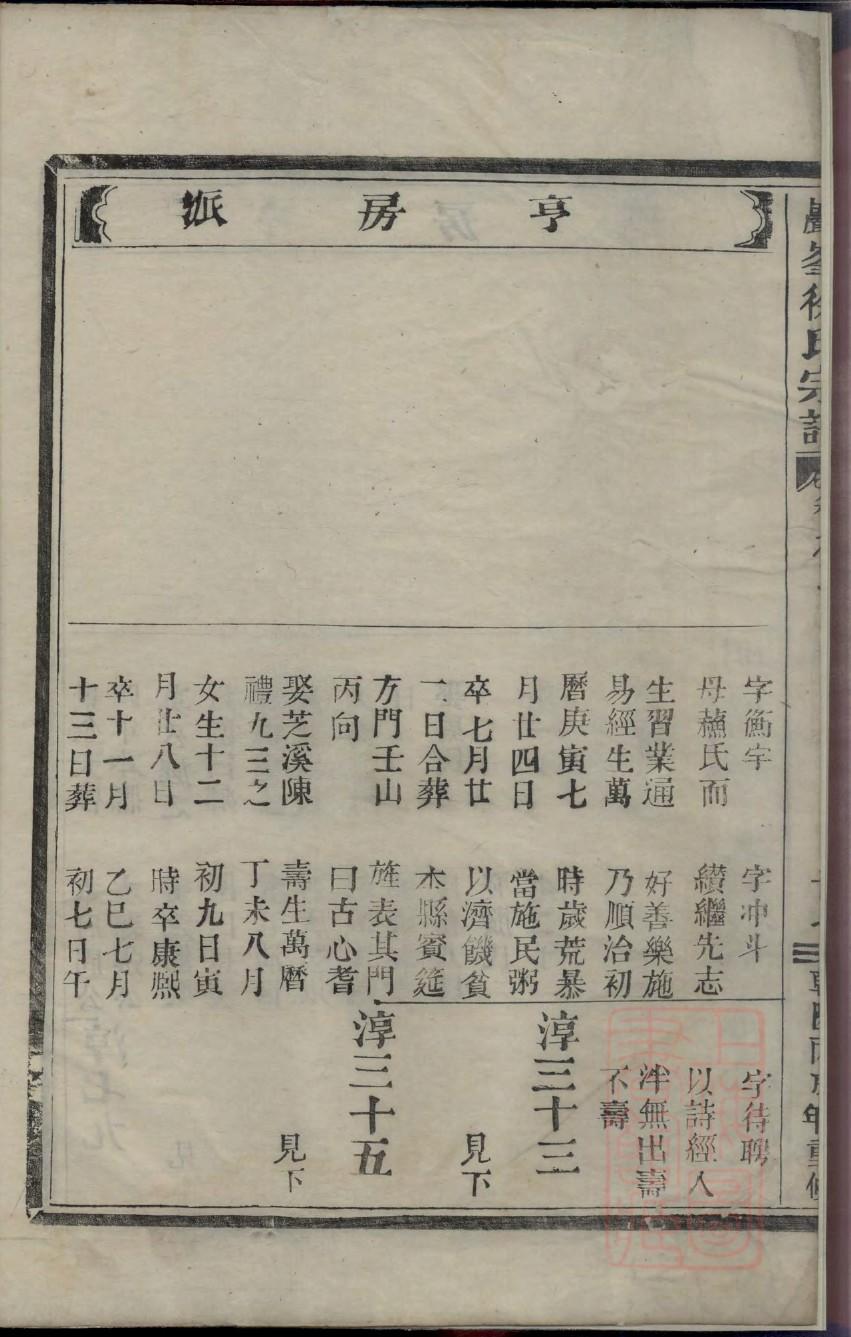 氏宗譜
年重修
亨房派
字衡宇
母蘓氏而
生習業通
易經生萬
曆庚寅七
月廿四日
卒七月廿
二日合葬
方門壬山
丙向
娶芝溪陳
禮九三之
女生十二
月廿八日
卒十一月
十三日葬
字冲斗
纉繼先志
好善樂施
乃順治初
時歲荒暴
當施民粥
以濟饑貧
本縣賓筵
旌表其門
曰古心耆
壽生萬曆
丁未八月
初九日寅
時卒康熙
乙巳七月
初七日午
字待聘
以詩經入
泮無出壽
不壽
淳三十三
見下
淳三十五
見下